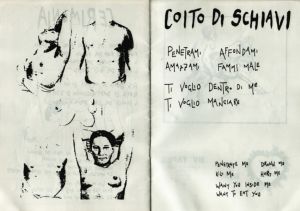 COITO DI SCHIAVI
PENETRAMI AFFONDAMI
AMMAZZAMI FAMMI MALE
TI VOGLIO DENTRO DI ME
TI VOGLIO MANGIARE
PENETRATE ME DROWN ME
KILL ME HURT ME
WANT YOU INSIDE ME
WANT TO EAT YOU